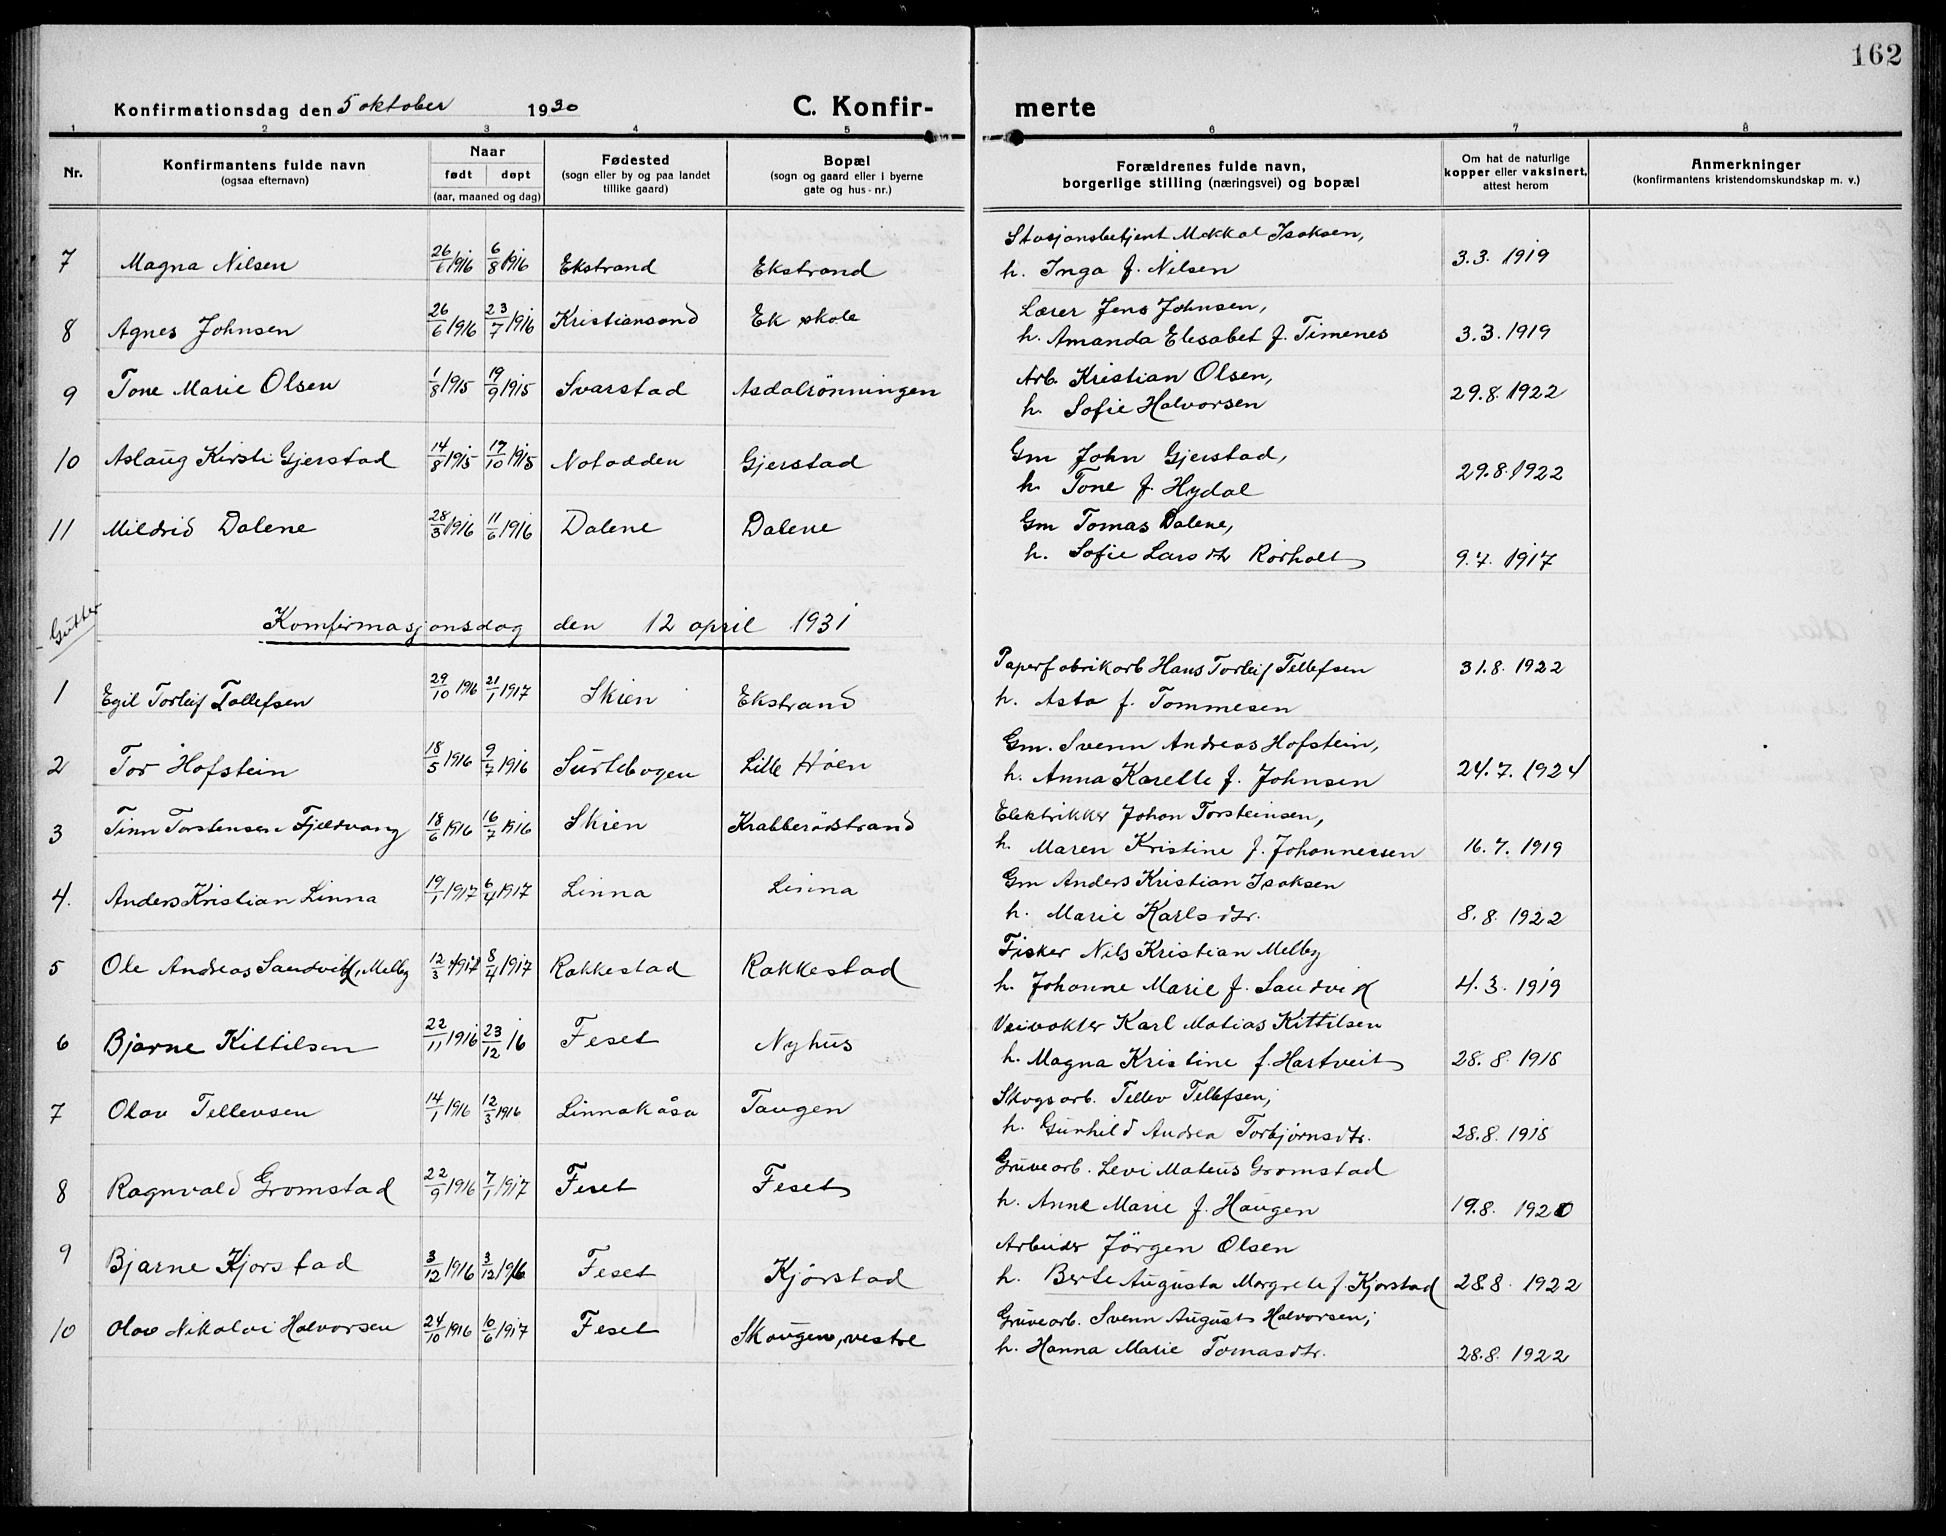 162
Konfirmationsdag den 5 oktober 1930 C. Konfir- merte
1 2 3 4 5 6 7 8
Nr. Konfirmantens fulde navn (ogsaa efternavn) Naar født døpt (aar, maaned og dag) Fødested (sogn eller by og paa landet tillike gaard) Bopæl (sogn og gaard eller i byerne gate og hus-nr.) Forældrenes fulde navn, borgerlige stilling (næringsvei) og bopæl Om hat de naturlige kopper eller vaksinert, attest herom Anmerkninger (konfirmantens kristendomskundskap m. v.)
7 Magna Nilsen 26/6 1916 6/8 1916 Ekstrand Ekstrand Stasjonsbetjent Mekkal Isaksen,
h. Inga f. Nilsen 3.3. 1919
8 Agnes Johnsen 26/6 1916 23/7 1916 Kristiansand Ek skole Lærer Jens Johnsen,
h. Amanda Elesabet f. Timenes 3.3. 1919
9 Tone Marie Olsen 1/8 1915 19/9 1915 Svarstad Asdalrønningen Arb. Kristian Olsen,
h. Sofie Halvorsen 29.8. 1922
10 Aslaug Kirsti Gjerstad 14/8 1915 17/10 1915 Notodden Gjerstad Gm John Gjerstad,
h. Tone f. Hydal 29.8. 1922
11 Mildrid Dalene 28/3 1916 11/6 1916 Dalene Dalene Gm Tomas Dalene,
h. Sofie Larsdtr Rørholt 9.7. 1917
Gutter Komfirmasjonsdag den 12 april 1931
1 Egil Torleif Tollefsen 29/10 1916 21/1 1917 Skien Ekstrand Paperfabrikarb Hans Torleif Tellefsen 31.8. 1922
h. Asta f. Tommesen
2 Tor Hofstein 18/5 1916 9/7 1916 Surtebogen Lille Høen Gm. Svenn Andreas Hofstein,
h. Anna Karelle f. Johnsen 24.7. 1924
3 Finn Torstensen Fjeldvang 18/6 1916 16/7 1916 Skien Krabberødstrand Elektrikker Johan Torsteinsen,
h. Maren Kristine f. Johannessen 16.7. 1919
4. Anders Kristian Linna 19/1 1917 6/4 1917 Linna Linna Gm Anders Kristian Isaksen
h. Marie Karlsdtr. 8.8. 1922
5 Ole Andreas Sandvik, Melby 12/3 1917 8/4 1917 Rakkestad Rakkestad Fisker Nils Kristian Melby
h. Johanne Marie f. Sandvik 4.3. 1919
6 Bjarne Kittilsen 22/11 1916 23/12 16 Feset Nyhus Veivokter Karl Matias Kittilsen
h. Magna Kristine f. Hartveit 28.8. 1918
7 Olav Tellevsen 14/1 1916 12/3 1916 Linnakåsa Taugen Skogsarb. Tellev Tellefsen,
h. Gunhild Andrea Torbjørnsdtr. 28.8. 1918
8 Ragnvald Gromstad 22/9 1916 7/1 1917 Feset Feset Gruvearb. Levi Mateus Gromstad
h. Anne Marie f. Haugen 19.8. 1920
9 Bjarne Kjørstad 3/12 1916 3/12 1916 Feset Kjørstad Arbeider Jørgen Olsen
h. Berte Augusta Margrete f. Kjørstad 28.8. 1922
10 Olav Nikolai Halvorsen 24/10 1916 10/6 1917 Feset Skaugen, vestre Gruvearb. Svenn August Halvorsen,
h. Hanna Marie Tomasdtr. 28.8. 1922